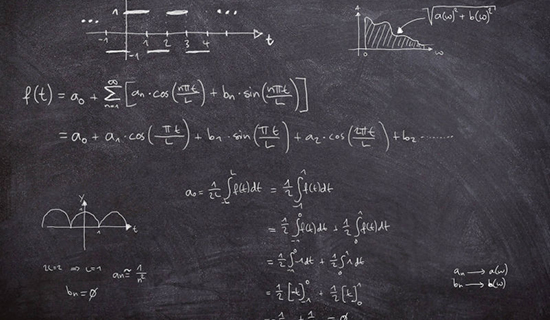 1
... ...
-1 1 2 3 4 t
-1
√(a(ω)² + b(ω)²)
0 ω
f(t) = a₀ + ∞∑n=1 [aₙ·cos(nπt/L) + bₙ·sin(nπt/L)]
= a₀ + a₁·cos(πt/L) + b₁·sin(πt/L) + a₂·cos(2πt/L) + b₂........
a₀ = 1/2L ∫-L^L f(t)dt = 1/2 ∫-1^1 f(t)dt
= 1/2 ∫-1^0 f(t)dt + 1/2 ∫0^1 f(t)dt
= 1/2 ∫-1^0 -1dt + 1/2 ∫0^1 1dt
= 1/2 [-t]-1^0 + 1/2 [t]0^1
y
t
2L=2 ∞ L=1 aₙ≈ 1/n²
bₙ=∅
aₙ → a(ω)
bₙ → b(ω)